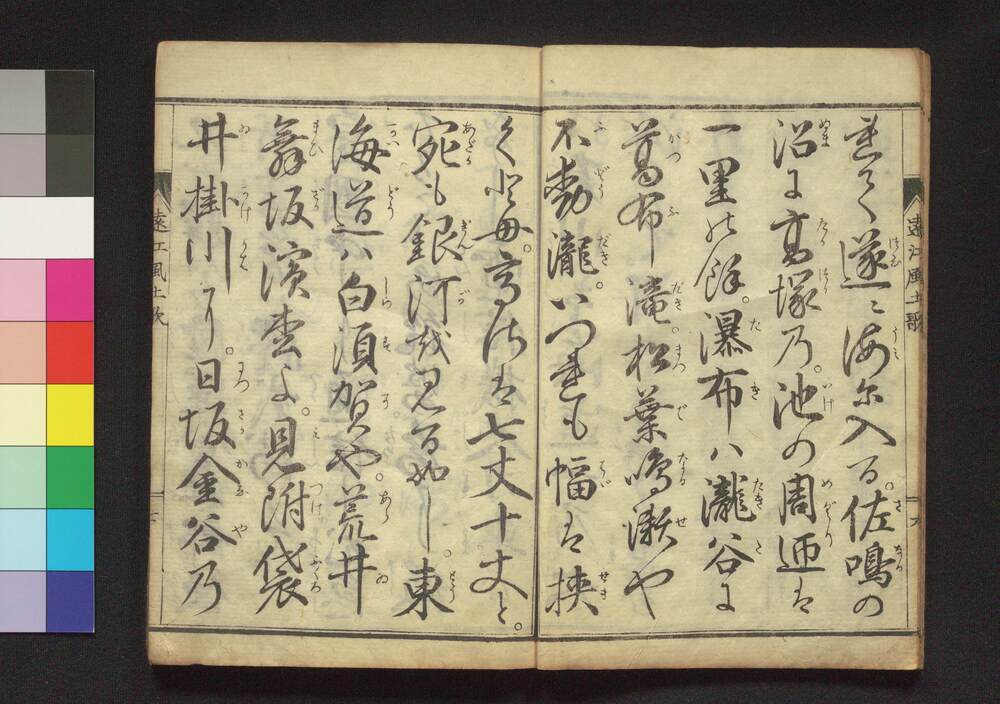 遠江風土歌
連て遂に海に入る。佐鳴の
沼に高塚乃。池の周廻は
一里の餘。瀑布は瀧谷に
葛布滝。松葉鳴瀬や
不動瀧。いづれも幅は挟
く。高さは七丈十丈と。
宛も銀河を見る如し。東
海道は白須賀や。荒井
舞坂濱松よ。見附袋
井掛川に。日坂金谷乃
遠江風土歌